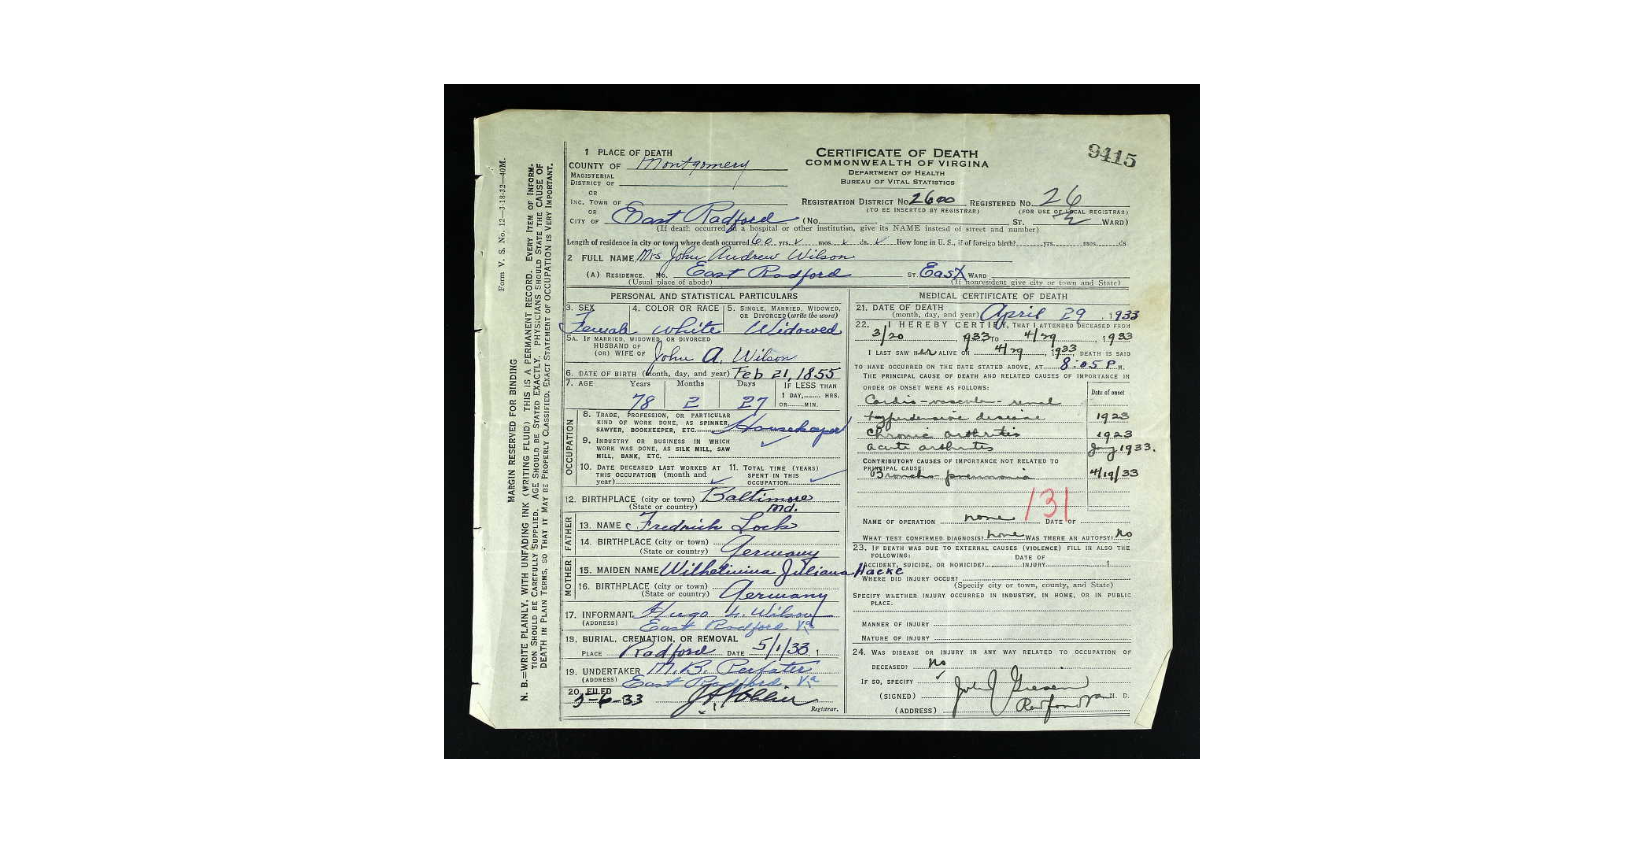 9415
1 PLACE OF DEATH
COUNTY OF Montgomery
MAGISTERIAL
DISTRICT OF
OR
INC. TOWN OF
OR
CITY OF East Radford (No. ST. 2 WARD)
CERTIFICATE OF DEATH
COMMONWEALTH OF VIRGINIA
DEPARTMENT OF HEALTH
BUREAU OF VITAL STATISTICS
REGISTRATION DISTRICT NO. 2600 REGISTERED NO. 26
(TO BE INSERTED BY REGISTRAR) (FOR USE OF LOCAL REGISTRAR)
(If death occurred in a hospital or other institution, give its NAME instead of street and number)
Length of residence in city or town where death occurred 60 yrs. mos. ds. How long in U. S., if of foreign birth? yrs. mos. ds
2 FULL NAME Mrs John Andrew Wilson
(A) RESIDENCE. No. East Radford ST. East WARD
(Usual place of abode) (If nonresident give city or town and State)
PERSONAL AND STATISTICAL PARTICULARS
3. SEX 4. COLOR OR RACE 5. SINGLE, MARRIED, WIDOWED, OR DIVORCED (write the word)
Female white Widowed
5A. IF MARRIED, WIDOWED, OR DIVORCED
HUSBAND OF
(OR) WIFE OF John A. Wilson
6. DATE OF BIRTH (month, day, and year) Feb 21, 1855
7. AGE Years Months Days IF LESS THAN
1 DAY, HRS.
OR MIN.
78 2 27
OCCUPATION
8. TRADE, PROFESSION, OR PARTICULAR
KIND OF WORK DONE, AS SPINNER,
SAWYER, BOOKKEEPER, ETC. Housekeeper
9. INDUSTRY OR BUSINESS IN WHICH
WORK WAS DONE, AS SILK MILL, SAW
MILL, BANK, ETC.
10. DATE DECEASED LAST WORKED AT
THIS OCCUPATION (month and
year)
11. TOTAL TIME (YEARS)
SPENT IN THIS
OCCUPATION
12. BIRTHPLACE (city or town) Baltimore
(State or country) Md.
FATHER
13. NAME Fredrick Lock
14. BIRTHPLACE (city or town)
(State or country) Germany
MOTHER
15. MAIDEN NAME Wilhelimina Juliana Hacke
16. BIRTHPLACE (city or town)
(State or country) Germany
17. INFORMANT Hugo L. Wilson
(ADDRESS) East Radford Va
18. BURIAL, CREMATION, OR REMOVAL
PLACE Radford DATE 5/1/33
19. UNDERTAKER M. B.
(ADDRESS) East Radford Va
20. FILED
5-6-33
Registrar.
MEDICAL CERTIFICATE OF DEATH
21. DATE OF DEATH
(month, day, and year) April 29, 1933
22. I HEREBY CERTIFY, THAT I ATTENDED DECEASED FROM
3/20 1933 TO 4/29, 1933
I LAST SAW her ALIVE ON 4/29, 1933, DEATH IS SAID
TO HAVE OCCURRED ON THE DATE STATED ABOVE, AT 8:05 P M.
THE PRINCIPAL CAUSE OF DEATH AND RELATED CAUSES OF IMPORTANCE IN
ORDER OF ONSET WERE AS FOLLOWS: Date of onset
Cardio-vascular-renal
Hypertensive disease 1923
Chronic arthritis 1923
acute arthritis Jany 1933.
CONTRIBUTORY CAUSES OF IMPORTANCE NOT RELATED TO
PRINCIPAL CAUSE:
Broncho pneumonia 4/19/33
131
NAME OF OPERATION none DATE OF
WHAT TEST CONFIRMED DIAGNOSIS? none WAS THERE AN AUTOPSY? No
23. IF DEATH WAS DUE TO EXTERNAL CAUSES (VIOLENCE) FILL IN ALSO THE
FOLLOWING:
DATE OF
ACCIDENT, SUICIDE, OR HOMICIDE? INJURY 1
WHERE DID INJURY OCCUR?
(Specify city or town, county, and State)
SPECIFY WHETHER INJURY OCCURRED IN INDUSTRY, IN HOME, OR IN PUBLIC
PLACE.
MANNER OF INJURY
NATURE OF INJURY
24. WAS DISEASE OR INJURY IN ANY WAY RELATED TO OCCUPATION OF
DECEASED? No
IF SO, SPECIFY
(SIGNED) John J Giesen M. D.
(ADDRESS) Radford Va
Form V. S. No. 12—1-18-32—40M.
MARGIN RESERVED FOR BINDING
N. B.—WRITE PLAINLY, WITH UNFADING INK (WRITING FLUID) THIS IS A PERMANENT RECORD. EVERY ITEM OF INFORM-
TION SHOULD BE CAREFULLY SUPPLIED. AGE SHOULD BE STATED EXACTLY. PHYSICIANS SHOULD STATE THE CAUSE OF
DEATH IN PLAIN TERMS, SO THAT IT MAY BE PROPERLY CLASSIFIED. EXACT STATEMENT OF OCCUPATION IS VERY IMPORTANT.